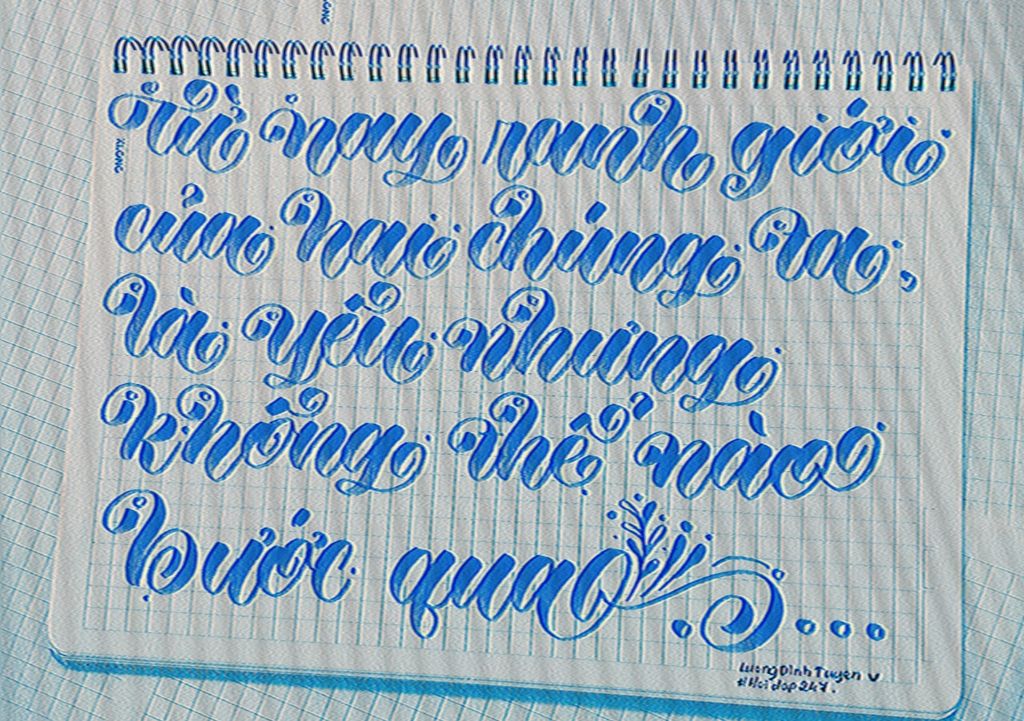 từ nay ranh giới
của hai chúng ta,
là yêu nhưng
không thể nào
bước qua...
Lương Đình Tuyen
#Hoidap247.
KLONG
KLONG